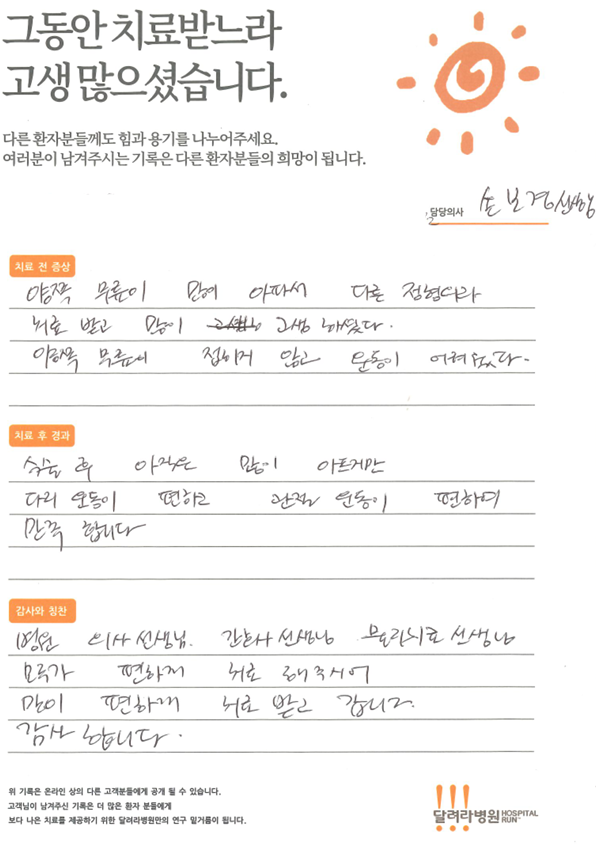 그동안 치료받느라
고생 많으셨습니다.
다른 환자분들께도 힘과 용기를 나누어주세요.
여러분이 남겨주시는 기록은 다른 환자분들의 희망이 됩니다.
담당의사 손보경 선생님
치료 전 증상
양쪽 무릎이 많이 아파서 다른 정형외과
치료 받고 많이 고생 하였다.
양쪽 무릎이 접히지 않고 운동이 어려웠다.
치료 후 경과
수술 후 아직은 많이 아프지만
다리 운동이 편하고 관절 운동이 편하여
만족 합니다
감사와 칭찬
병원 의사 선생님. 간호사 선생님 물리치료 선생님
모두가 편하게 치료 해주시어
많이 편하게 치료 받고 갑니다.
감사 합니다.
위 기록은 온라인 상의 다른 고객분들에게 공개 될 수 있습니다.
고객님이 남겨주신 기록은 더 많은 환자 분들에게
보다 나은 치료를 제공하기 위한 달려라병원만의 연구 밑거름이 됩니다.
달려라병원 HOSPITAL RUN™